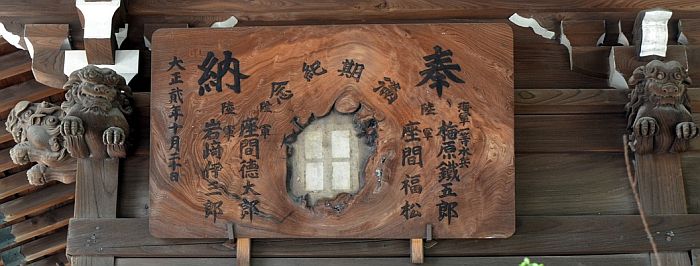 奉納
滿期紀念
海軍一等水兵 梅原鐵五郎
陸軍 座間福松
陸軍 座間德太郎
陸軍 岩﨑伊三郎
大正貳年十月二十日